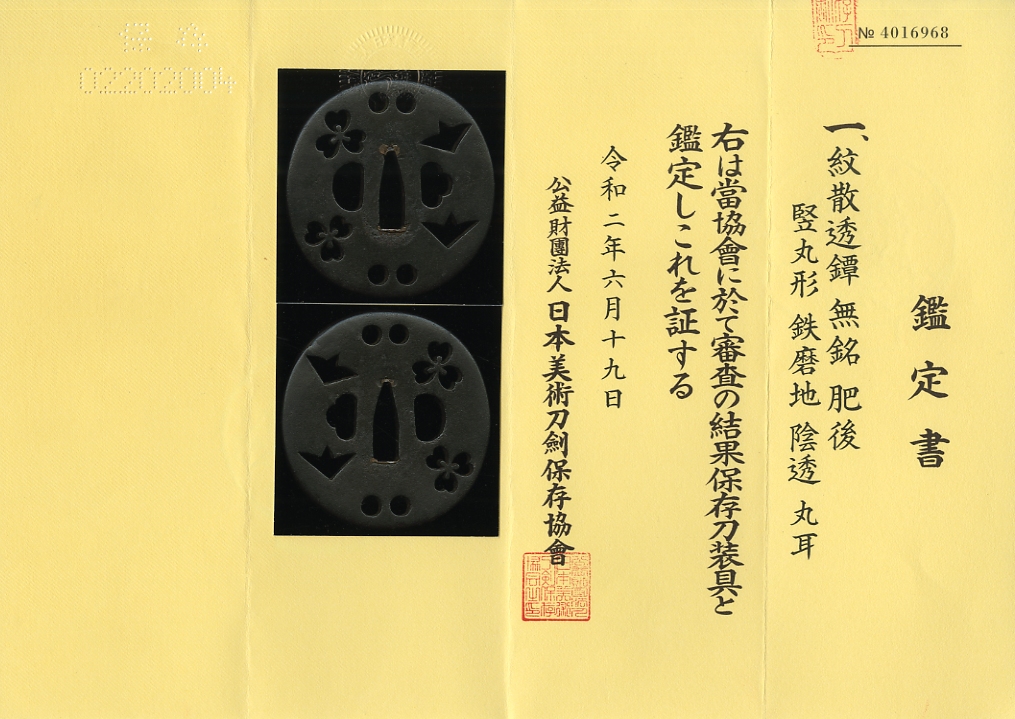 № 4016968
鑑定書
一、紋散透鐔 無銘 肥後
竪丸形 鉄磨地 陰透 丸耳
右は當協會に於て審査の結果保存刀装具と
鑑定しこれを証する
令和二年六月十九日
公益財團法人 日本美術刀劍保存協會
保存
02202004